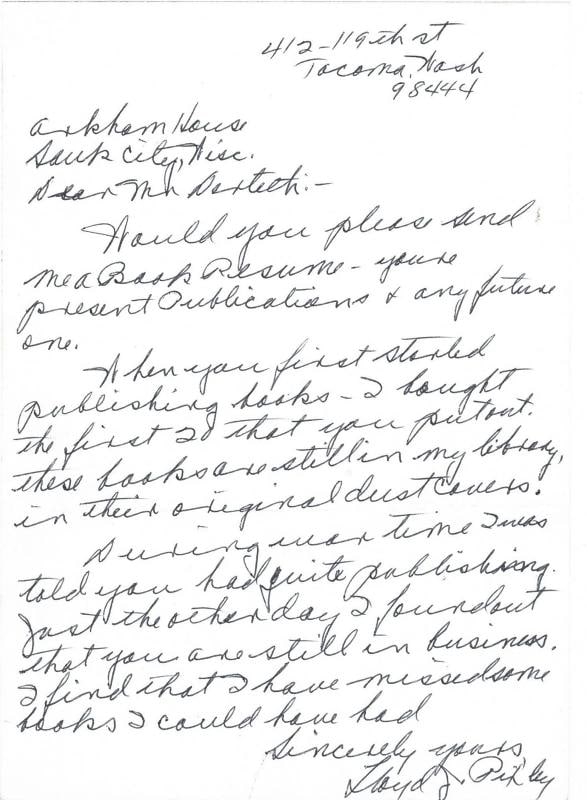 412-119th st
Tacoma, Wash
98444
Arkham House
Sauk City, Wisc.
Dear Mr Derleth:-
Would you please send
me a Book Resume - youre
present Publications & any future
one.
When you first started
publishing books - I bought
the first 20 that you put out.
these books are still in my library,
in their original dust covers.
During war time I was
told you had quite publishing.
Just the other day I found out
that you are still in business.
I find that I have missed some
books I could have had
Sincerely yours,
Lloyd J. Pixley